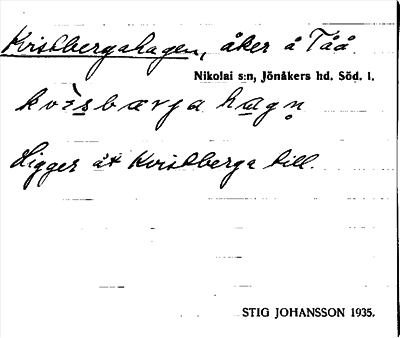 Kvistbergahagen, åker å Tåå.
Nikolai s:n, Jönåkers hd. Söd. l.
kvìsbærja hagn̥
Ligger åt Kvistberga till.
STIG JOHANSSON 1935.